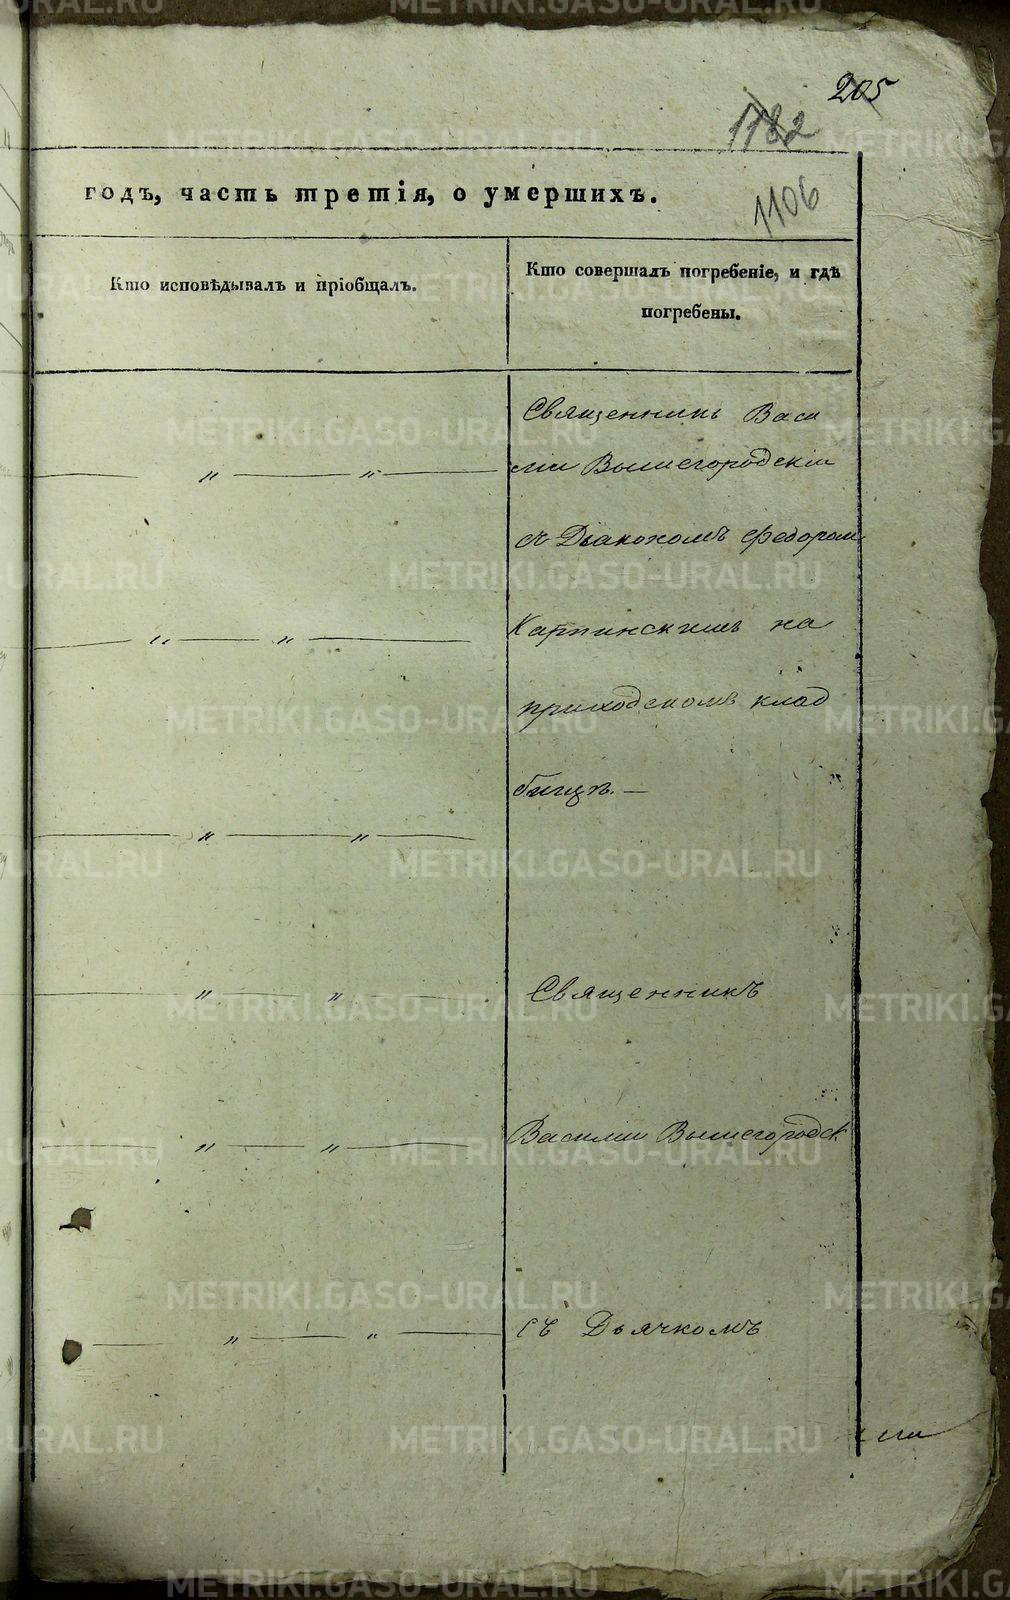 205
1182
годъ, часть третія, о умершихъ.
1106
Кто исповѣдывалъ и пріобщалъ.
Кто совершалъ погребеніе, и гдѣ
погребены.
Священникъ Васи
лій Вышегородскій
— „ — „ —
съ Діакономъ Федоромъ
Карпинскимъ на
— „ — „ —
приходскомъ клад
бищѣ. —
— „ — „ —
Священникъ
— „ — „ —
Василій Вышегородск
— „ — „ —
съ Дьячкомъ
— „ — „ —
METRIKI.GASO-URAL.RU